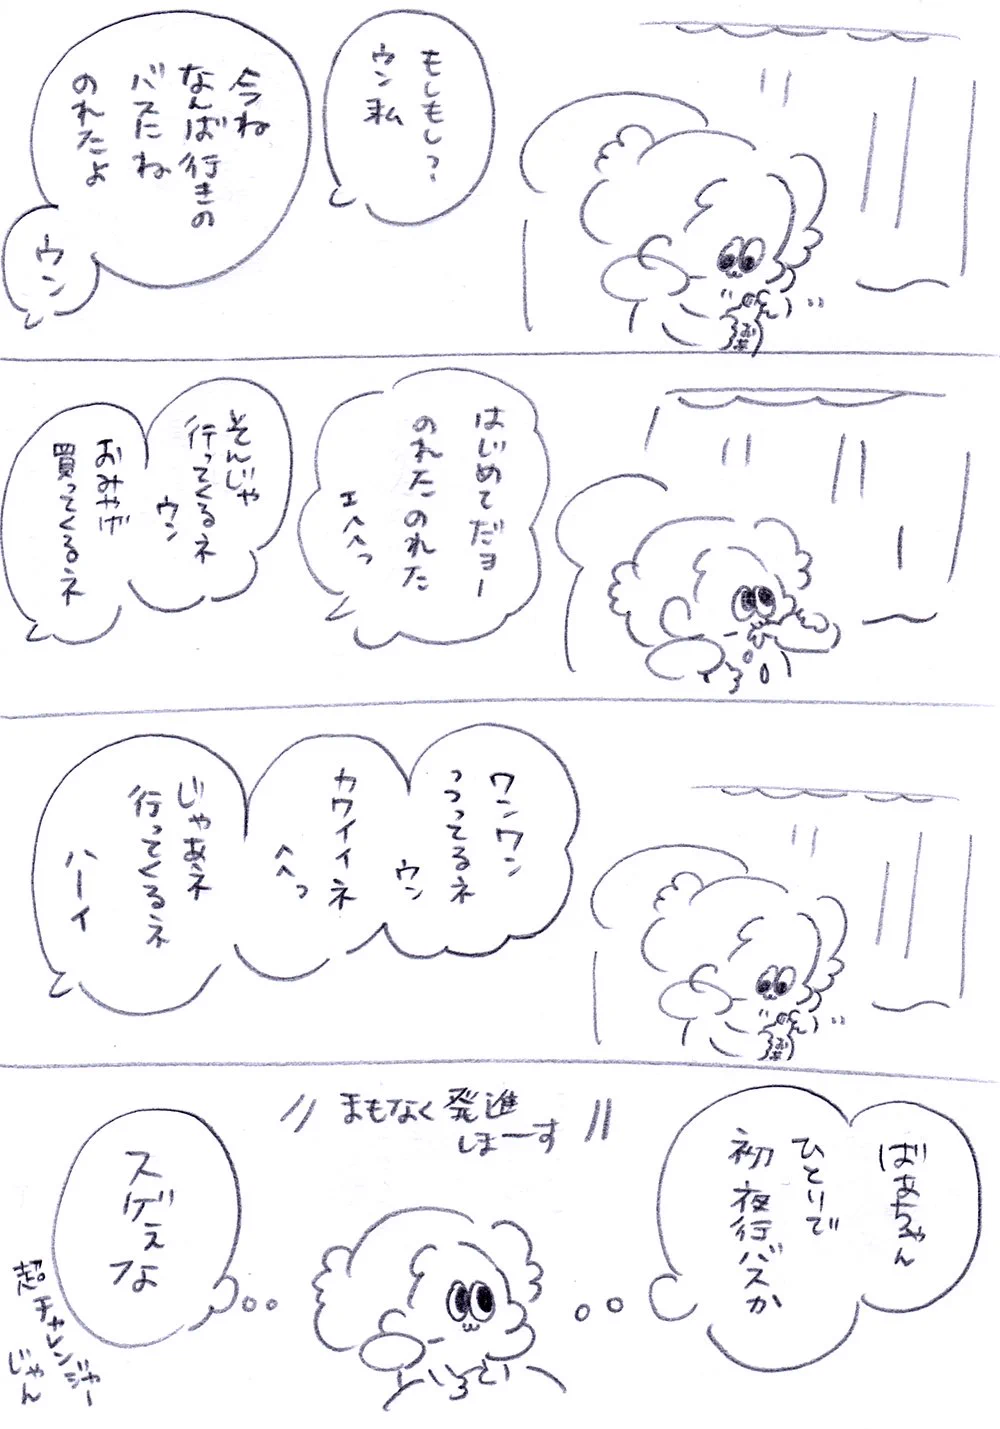 もしもし？
ウン私
今ね
なんば行きの
バスにね
のれたよ
ウン
はじめてだョー
のれたのれた
エヘヘっ
そんじゃ
行ってくるネ
ウン
おみやげ
買ってくるネ
ワンワン
うつってるネ
ウン
カワイイネ
ヘヘっ
じゃあネ
行ってくるネ
ハーイ
まもなく発進
しまーす
ばあちゃん
ひとりで
初夜行バスか
スゲぇ
な
超チャレンジャー
じゃん